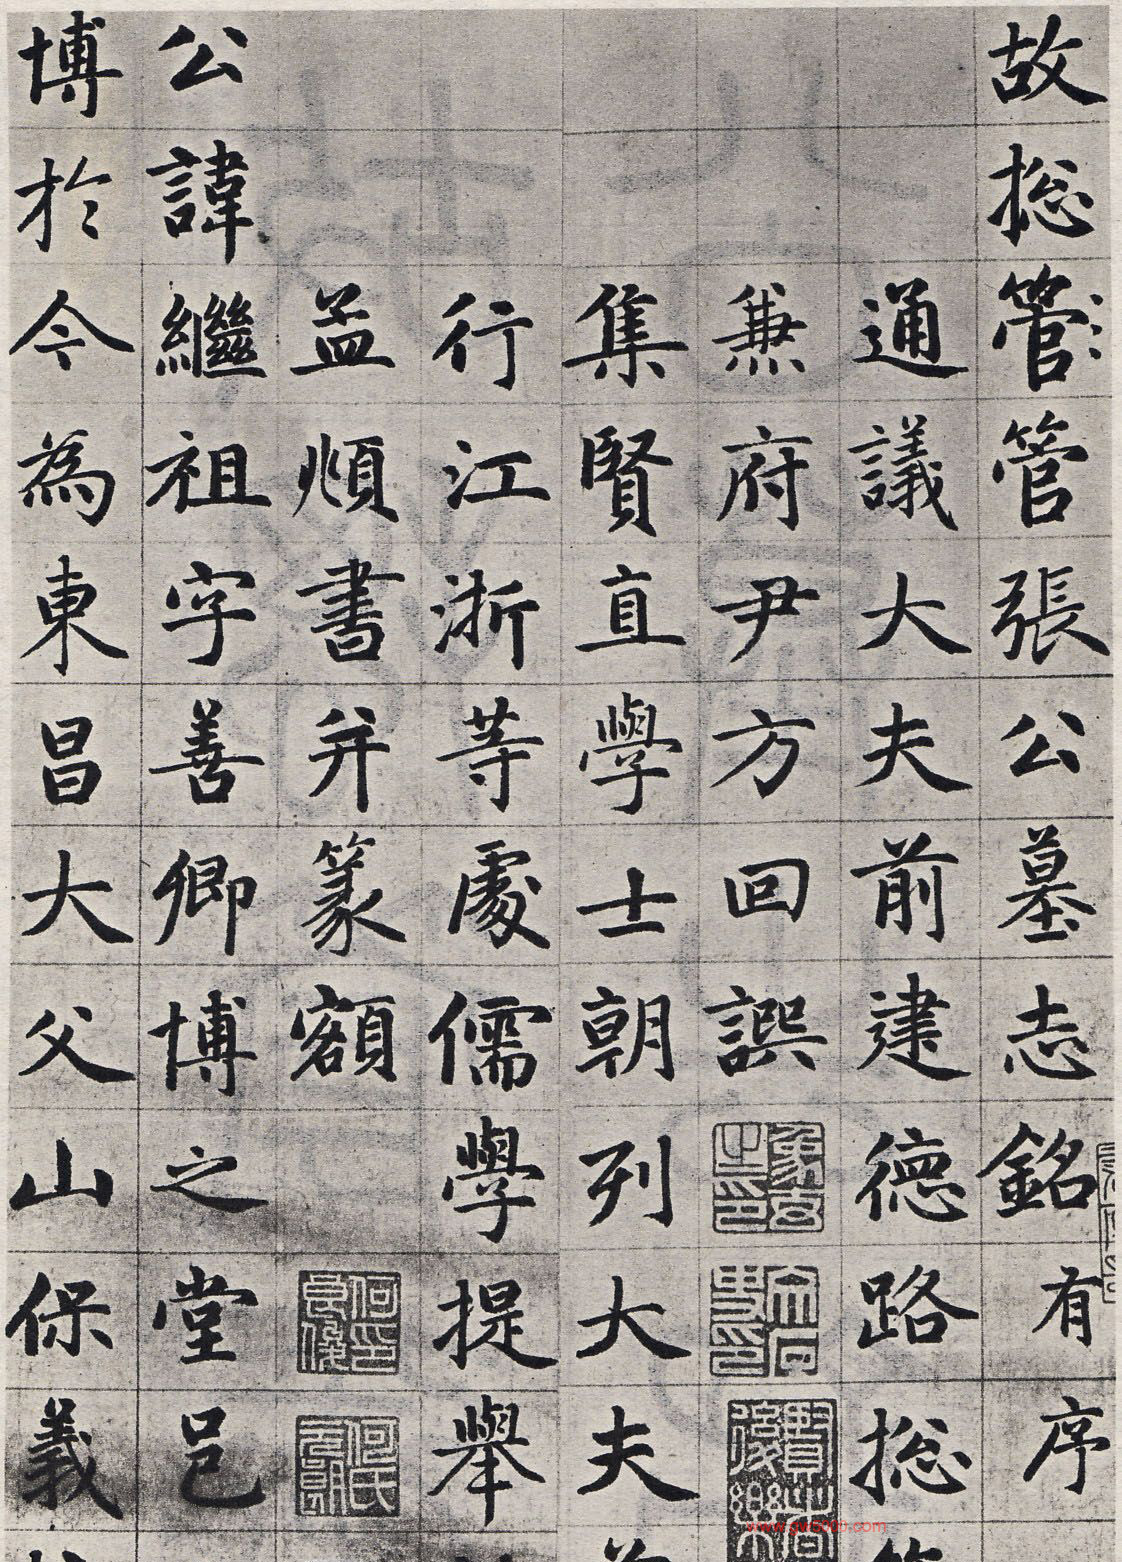 故捴管管張公墓志銘有序
通議大夫前建德路捴管
兼府尹方回譔
集賢直學士朝列大夫
行江浙等處儒學提舉
孟頫書并篆額
公諱繼祖字善卿博之堂邑
博於今為東昌大父山保義